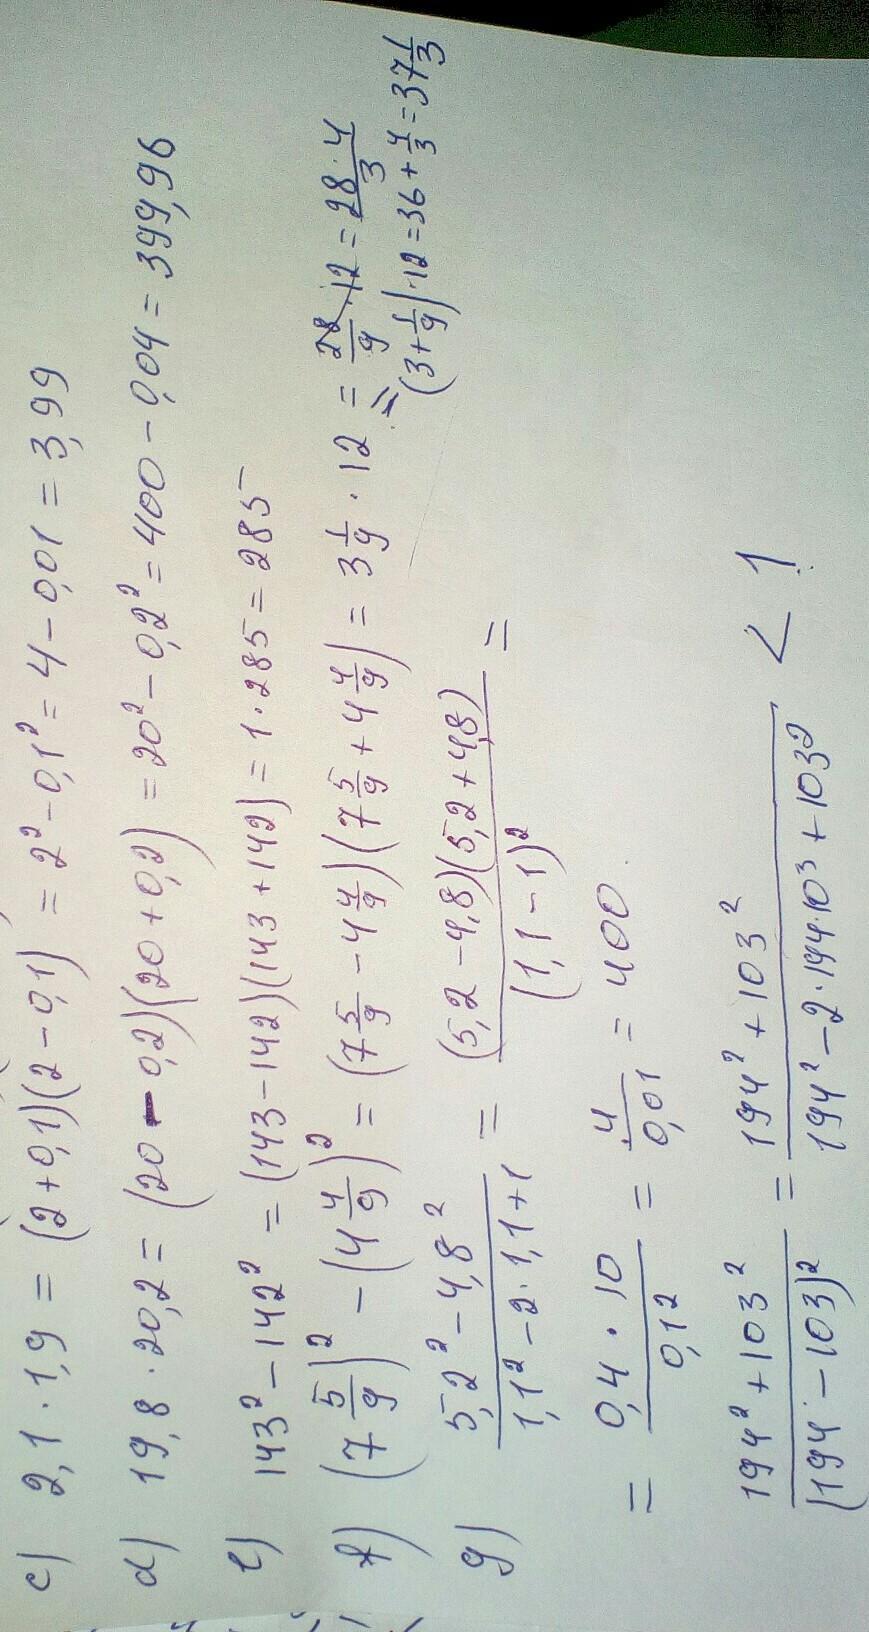 c) 2,1 · 1,9 = (2+0,1)(2-0,1) = 2² - 0,1² = 4 - 0,01 = 3,99
d) 19,8 · 20,2 = (20-0,2)(20+0,2) = 20² - 0,2² = 400 - 0,04 = 399,96
e) 143² - 142² = (143-142)(143+142) = 1 · 285 = 285
f) (7 5/9)² - (4 4/9)² = (7 5/9 - 4 4/9)(7 5/9 + 4 4/9) = 3 1/9 · 12 = 28/9 · 12 = 28·4/3
= (3+1/9)·12 = 36 + 4/3 = 37 1/3
g) (5,2² - 4,8²)/(1,1² - 2·1,1+1) = (5,2-4,8)(5,2+4,8)/(1,1-1)² =
= 0,4 · 10/0,1² = 4/0,01 = 400.
(194² + 103²)/(194 - 103)² = (194² + 103²)/(194² - 2·194·103 + 103²) < 1
?